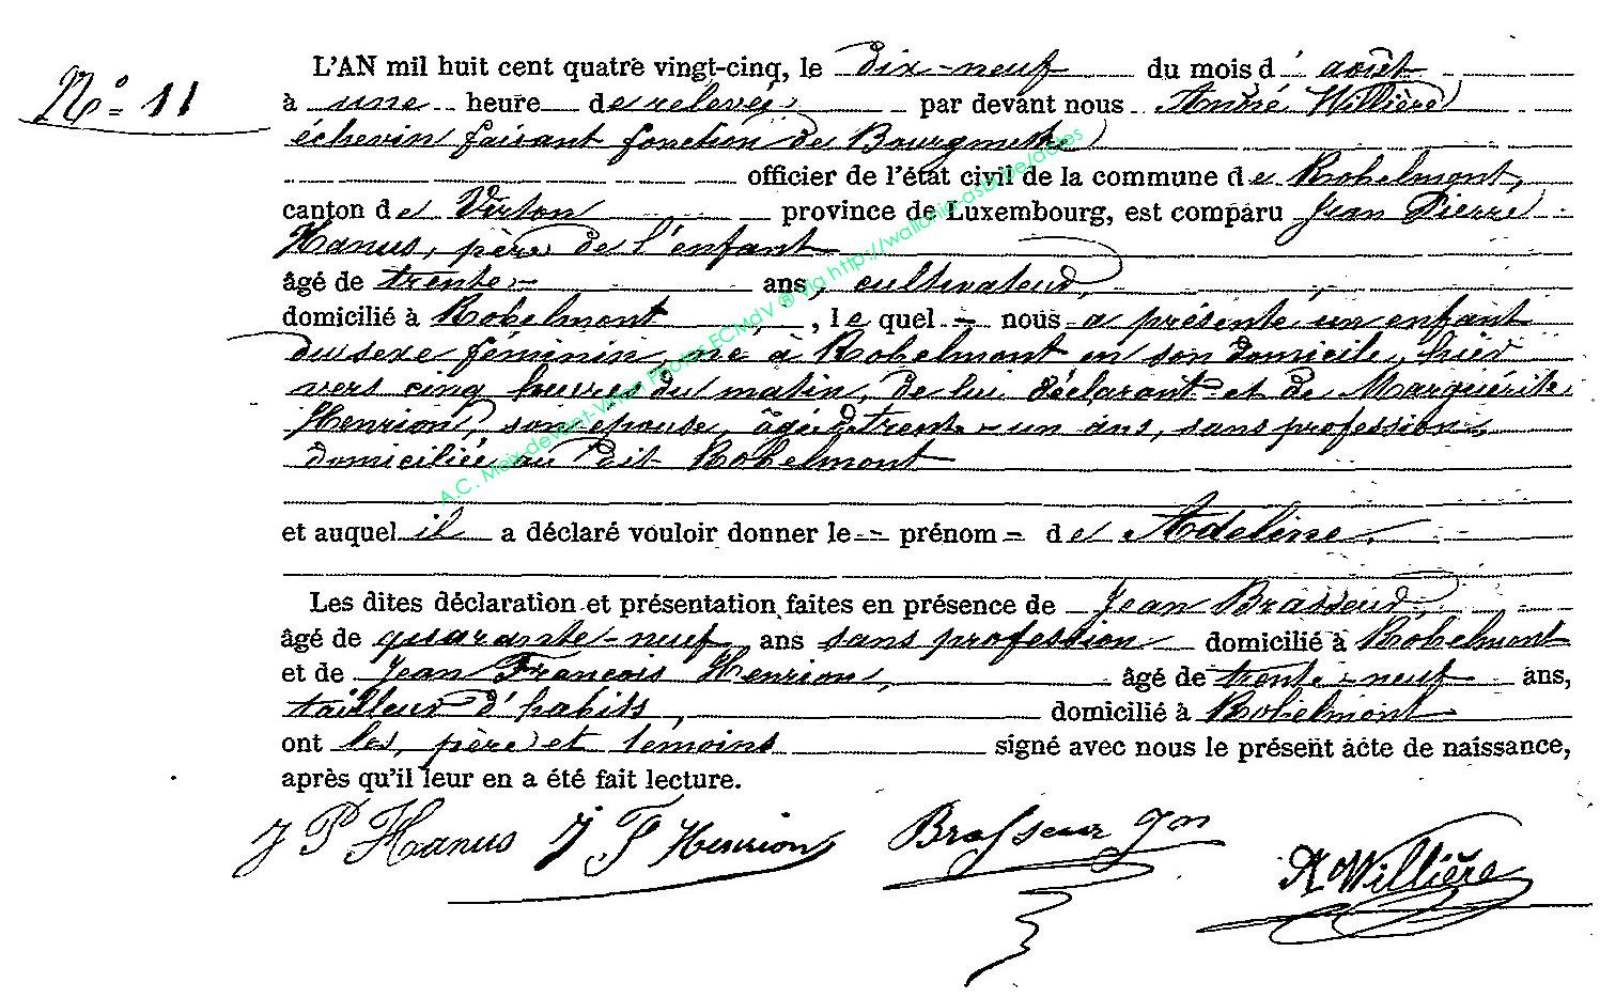 N° 11
L'AN mil huit cent quatre vingt-cinq, le dix-neuf du mois d' août
à une heure de relevée par devant nous André Willière
échevin faisant fonction de Bourgmestre
officier de l'état civil de la commune de Robelmont,
canton de Virton province de Luxembourg, est comparu Jean Pierre
Hanus, père de l'enfant
âgé de trente ans, cultivateur,
domicilié à Robelmont, le quel nous a présenté un enfant
du sexe féminin, né à Robelmont en son domicile, hier
vers cinq heures du matin, de lui déclarant et de Marguérite
Henrion, son épouse, âgée de trente-un ans, sans profession,
domiciliée au dit Robelmont
et auquel il a déclaré vouloir donner le prénom de Adeline.
Les dites déclaration et présentation faites en présence de Jean Brasseur,
âgé de quarante-neuf ans sans profession domicilié à Robelmont
et de Jean François Henrion, âgé de trente-neuf ans,
tailleur d'habits, domicilié à Robelmont
ont les, père et témoins signé avec nous le présent acte de naissance,
après qu'il leur en a été fait lecture.
J P Hanus J F Henrion Brasseur Jean
A Willière
A.C. Meix-devant-Virton Photos ECMdV ® via http://wallonia-asbl.be/actes